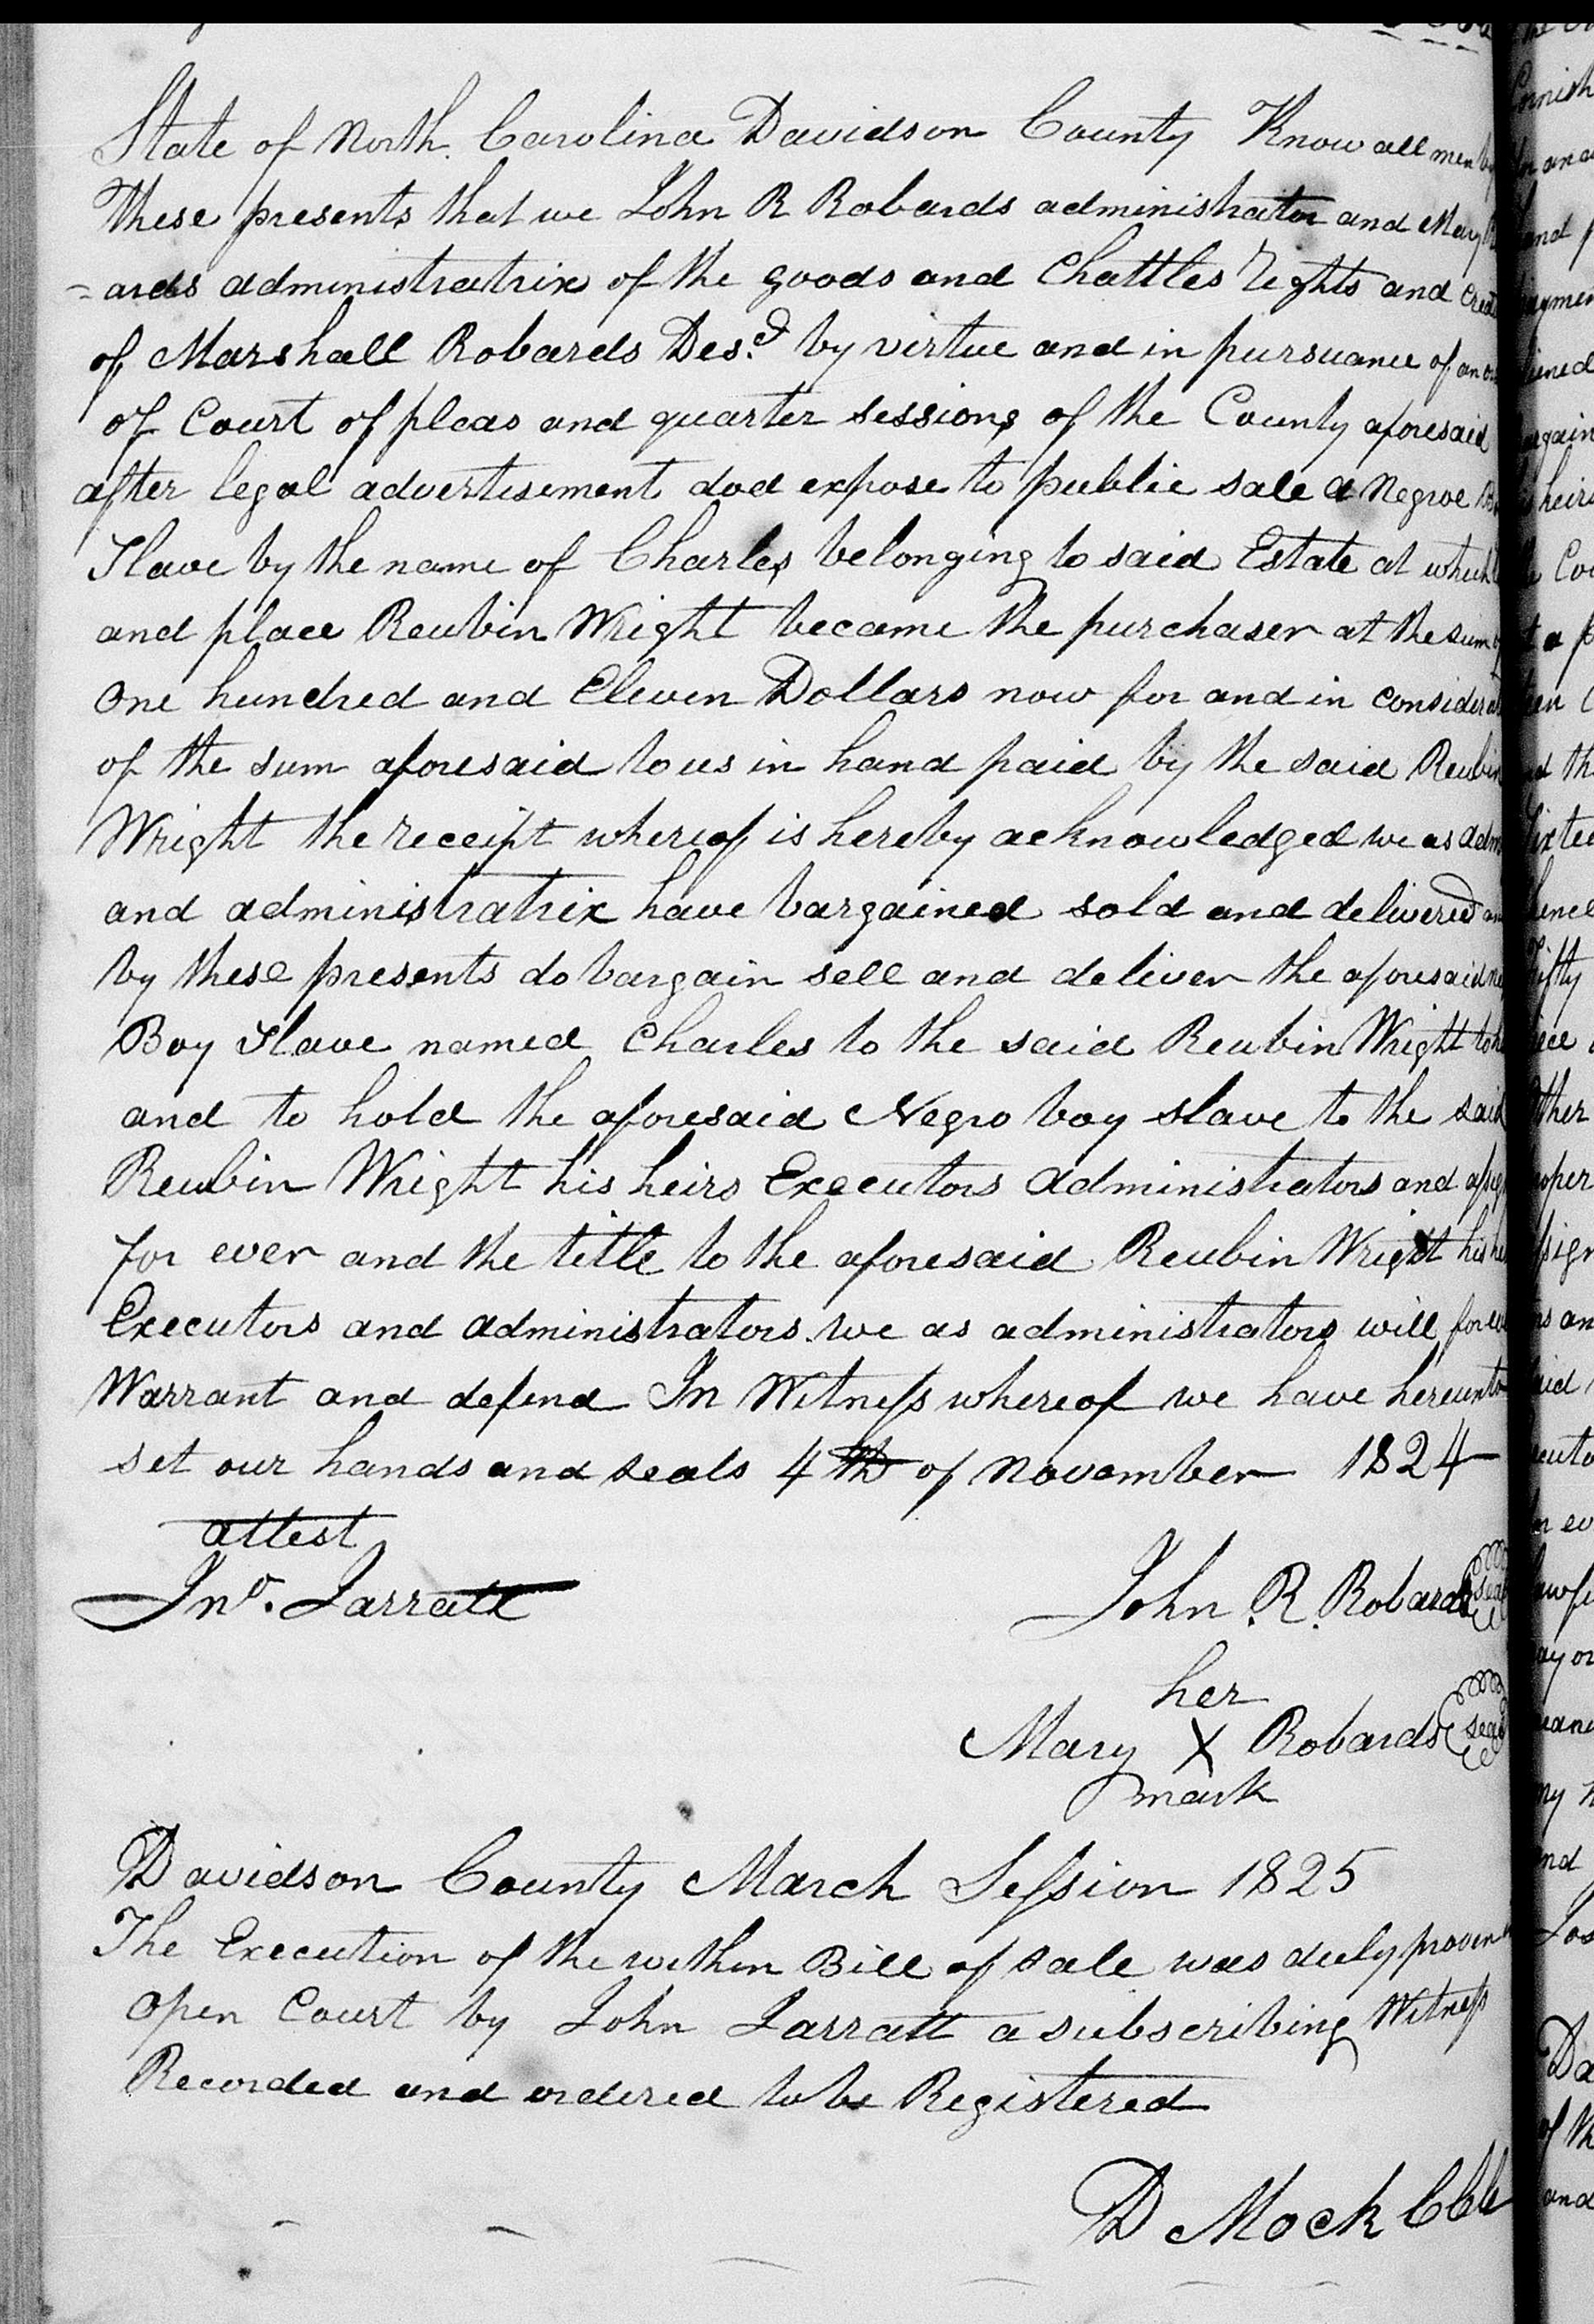 State of North Carolina Davidson County Know all men by
these presents that we John R Robards administrator and Mary
= ards administratrix of the goods and Chattles rights and
of Marshall Robards Desd by virtue and in pursuance of an
of Court of pleas and quarter sessions of the County aforesaid
after legal advertisement dod expose to public sale a Negroe
Slave by the name of Charles belonging to said Estate at which
and place Reubin Wright became the purchaser at the sum
One hundred and Eleven Dollars now for and in
of the sum aforesaid to us in hand paid by the said Reubin
Wright the receipt whereof is hereby acknowledged we as
and administratrix have bargained sold and delivered
by these presents do bargain sell and deliver the aforesaid
Boy Slave named Charles to the said Reubin Wright to
and to hold the aforesaid Negro boy slave to the said
Reubin Wright his heirs Executors administrators and
for ever and the title to the aforesaid Reubin Wright his
Executors and administrators we as administrators will
Warrant and defend In Witness whereof we have hereunto
set our hands and seals 4th of November 1824
attest
Jno. Jarratt
John R. Robards seal
her
Mary X Robards seal
mark
Davidson County March Session 1825
The Execution of the within Bill of sale was duly proven
open Court by John Jarratt a subscribing Witness
Recorded and ordered to be Registered
D Mock